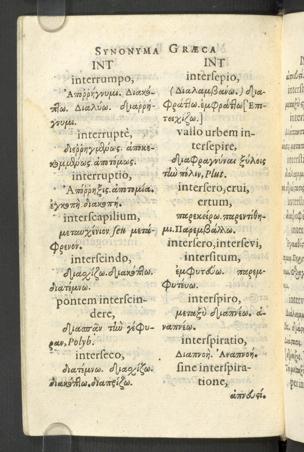 SYNONYMA GRÆCA
INT
interrumpo,
Ἀποῤῥήγνυμι. Διακό-
πτω. Διαλύω. διαρρή-
γνυμι.
interruptè,
διεῤῥηγμένως. ἀποκε-
κομμένως. ἀποτόμως.
interruptio,
Ἀπόῤῥηξις. ἀποτομία.
ἐγκοπὴ. διακοπὴ.
interscapilium,
μεταυχένιον seu μετά-
φρενον.
interscindo,
διαχίζω. διακόπτω.
διατέμνω.
pontem interscin-
dere,
διασπᾶν τὴν γέφυ-
ραν, Polyb.
interseco,
διατέμνω. διαχίζω.
διακόπτω. διαπρίζω.
INT
intersepio,
(Διαλαμβάνω.) δια-
φράττω. ἐμφράττω [Ἐπι-
τειχίζω.]
vallo urbem in-
tersepire,
διαφραγνύναι ξύλοις
τὴν πόλιν, Plut.
intersero, erui,
ertum,
παρεκείρω. παρεντίθη-
μι. Παρεμβάλλω.
intersero, intersevi,
intersitum,
ἐμφυτεύω. παρεμ-
φυτεύω.
interspiro,
μεταξὺ διαπνέω. ἀ-
ναπνέω.
interspiratio,
Διαπνοή. Ἀναπνοή.
sine interspira-
tione,
ἀπνευστί.